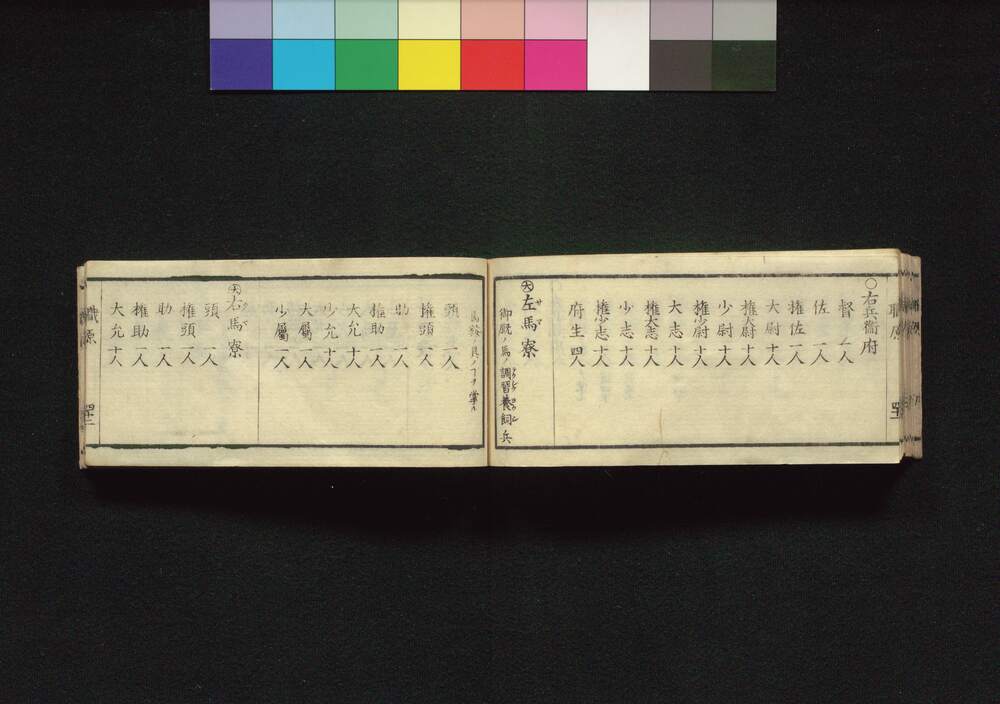 ○右兵衞府
督 一人
佐 一人
権佐 一人
大尉 十人
権大尉 十人
少尉 十人
権少尉 十人
大志 十人
権大志 十人
少志 十人
権少志 十人
府生 四人
大 左馬寮 サ マ
御厩ノ馬ノ調習養飼兵
馬 ノ 掌ル
頭 一人
権頭 一人
助 一人
権助 一人
大允 十人
少允 十人
大屬 一人
少屬 一人
大 右馬寮
頭 一人
権頭 一人
助 一人
権助 一人
大允 十人
職原